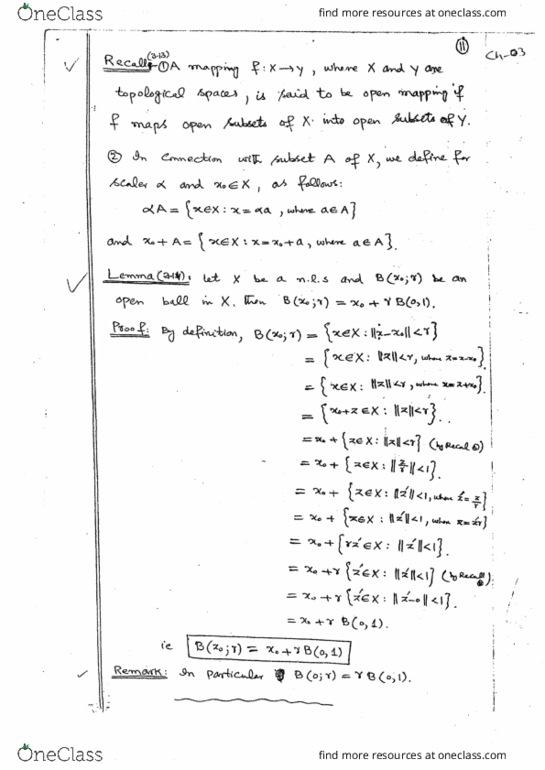 OneClass
find more resources at oneclass.com
11
Ch-03
Recall:- (3-13) ① A mapping f: X→Y, where X and Y are
topological spaces, is said to be open mapping if
f maps open subsets of X into open subsets of Y.
② In connection with subset A of X, we define for
scaler α and x₀∈X, as follows:
αA = {x∈X : x=αa, where a∈A}
and x₀+A = {x∈X : x=x₀+a, where a∈A}.
Lemma (3-14): Let X be a n.l.s and B(x₀;r) be an
open ball in X. Then B(x₀;r) = x₀ + r B(0,1).
Proof: By definition, B(x₀;r) = {x∈X : ||x-x₀||<r}
= {x∈X : ||z||<r, where z=x-x₀}.
= {x∈X : ||z||<r, where x=z+x₀}.
= {x₀+z∈X : ||z||<r}.
= x₀ + {z∈X : ||z||<r} (by Recall ②)
= x₀ + {z∈X : ||z/r||<1}.
= x₀ + {z∈X : ||z'||<1, where z'=z/r}
= x₀ + {z∈X : ||z'||<1, where z=z'r}
= x₀ + {rz'∈X : ||z'||<1}.
= x₀ + r {z'∈X : ||z'||<1} (by Recall)
= x₀ + r {z'∈X : ||z'-0||<1}.
= x₀ + r B(0,1).
ie B(x₀;r) = x₀ + r B(0,1)
Remark: In particular B(0;r) = r B(0,1).
OneClass
find more resources at oneclass.com